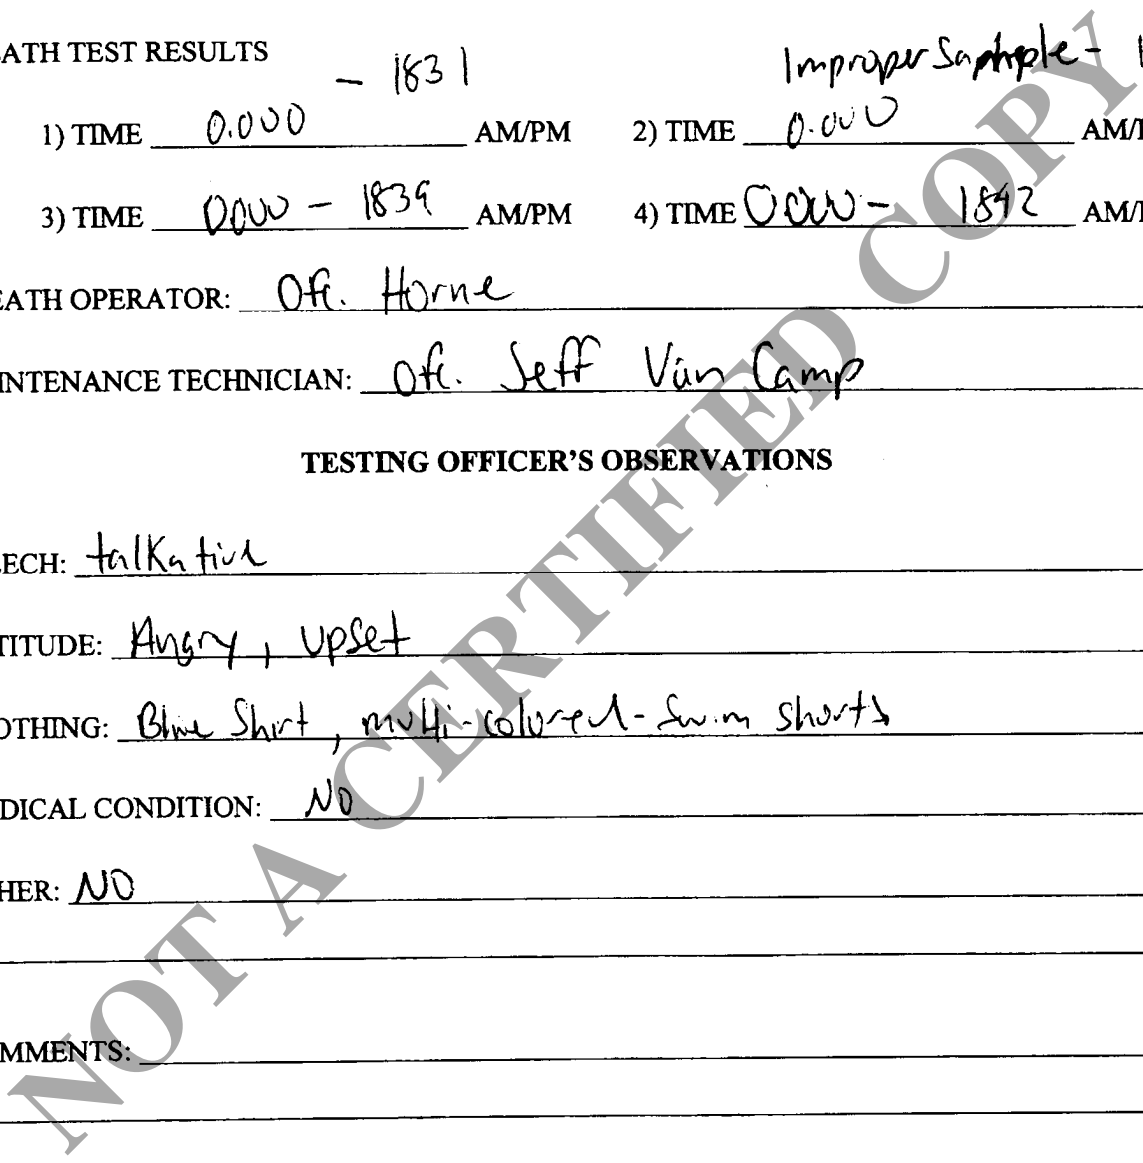 EATH TEST RESULTS - 1831 Improper Sample - 1
1) TIME 0.000 AM/PM 2) TIME 0.000 AM/
3) TIME 0000 - 1839 AM/PM 4) TIME 0000 - 1842 AM/
EATH OPERATOR: Ofc. Horne
INTENANCE TECHNICIAN: Ofc. Jeff Van Camp
TESTING OFFICER'S OBSERVATIONS
EECH: talkative
TITUDE: Angry, upset
OTHING: Blue Shirt, multi-colored-Swim shorts
DICAL CONDITION: NO
HER: NO
MMENTS:
NOT A CERTIFIED COPY